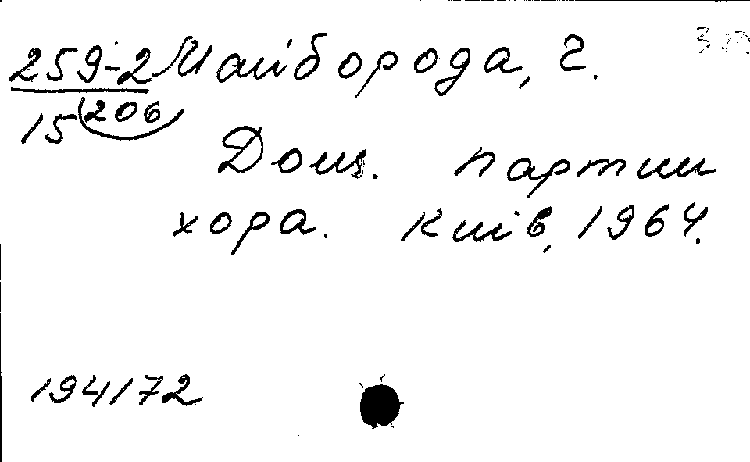 259-2 Майборода, Г.
15 (206
Дощ. партии
хора. Київ, 1964.
194172